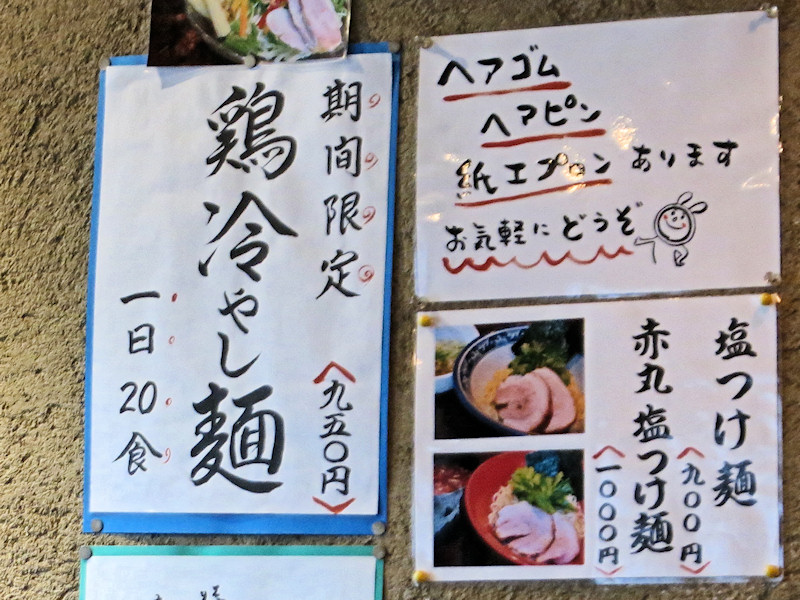 期間限定
〈九五〇円〉
鶏冷やし麺
一日20食
ヘアゴム
ヘアピン
紙エプロン あります
お気軽にどうぞ
塩つけ麺
〈九〇〇円〉
赤丸 塩つけ麺
〈一〇〇〇円〉